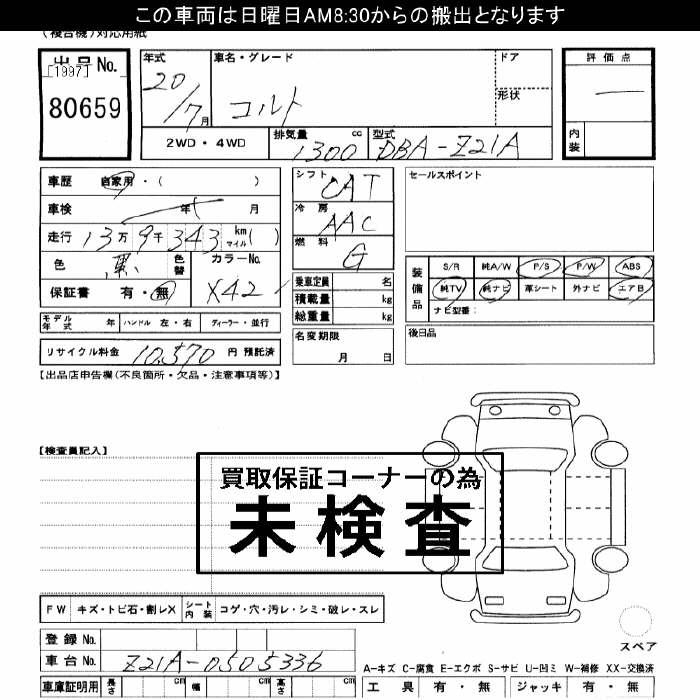 この車両は日曜日AM8:30からの搬出となります
(複合機)対応用紙
出品No.
[1997]
80659
年式 車名・グレード ドア
20/7月 コルト 形状
評価点
一
内装
2WD・4WD 排気量 1300 cc 型式 DBA-Z21A
車歴 自家用・( )
車検 年 月
走行 13万9千343 km マイル( )
色 黒 色替 カラーNo.
保証書 有・無 X42
シフト CAT
冷房 AAC
燃料 G
乗車定員 名
積載量 kg
総重量 kg
名変期限
月 日
セールスポイント
装備品 S/R 純A/W P/S P/W ABS
純TV 純ナビ 革シート 外ナビ エアB
ナビ型番:
後日品
モデル年式 年 ハンドル 左・右 ディーラー・並行
リサイクル料金 10,570 円 預託済
【出品店申告欄(不良箇所・欠品・注意事項等)】
【検査員記入】
買取保証コーナーの為
未検査
FW キズ・トビ石・割レX シート内装 コゲ・穴・汚レ・シミ・破レ・スレ
登録No.
車台No. Z21A-0505336
車庫証明用 長さ cm 幅 cm 高さ cm
スペア
A-キズ C-腐食 E-エクボ S-サビ U-凹ミ W-補修 XX-交換済
工具 有・無 ジャッキ 有・無